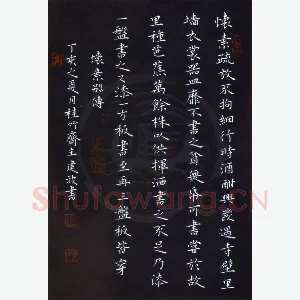 懷素疏放不拘細行時酒酣興發遇寺壁里
墻衣裳器皿靡不書之貧無紙可書嘗於故
里種芭蕉萬餘株以供揮洒書之不足乃漆
一盤書之又漆一方板書至再三盤板皆穿
懷素別傳
丁亥之夏月桂竹齋主建
書
Shufawang.CN